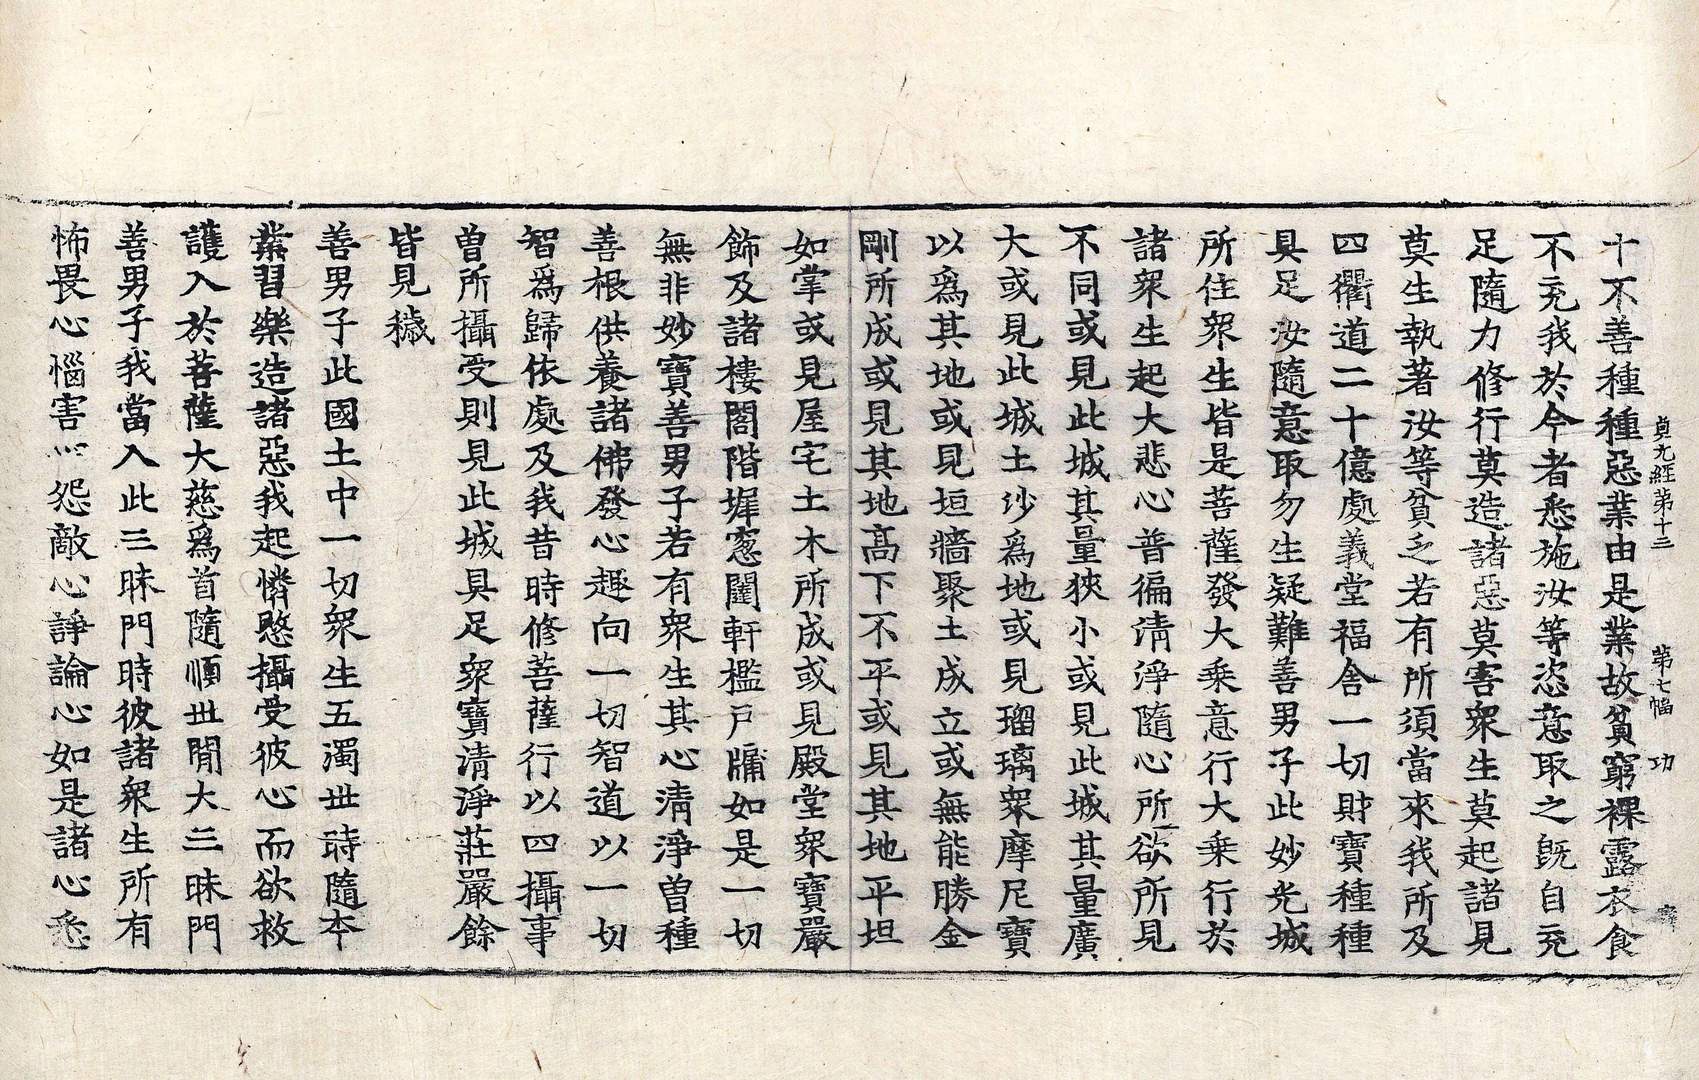 貞元經第十三　第七幅　功
十不善種種惡業由是業故貧窮裸露衣食
不充我於今者悉施汝等恣意取之既自充
足隨力修行莫造諸惡莫害衆生莫起諸見
莫生執著汝等貧乏若有所須當來我所及
四衢道二十億處義堂福舍一切財寶種種
具足汝隨意取勿生疑難善男子此妙光城
所住衆生皆是菩薩發大乘意行大乘行於
諸衆生起大悲心普徧淸淨隨心所欲所見
不同或見此城其量狹小或見此城其量廣
大或見此城土沙爲地或見瑠璃衆摩尼寶
以爲其地或見垣牆聚土成立或無能勝金
剛所成或見其地高下不平或見其地平坦
如掌或見屋宅土木所成或見殿堂衆寶嚴
飾及諸樓閣階墀窓闥軒檻戶牖如是一切
無非妙寶善男子若有衆生其心淸淨曾種
善根供養諸佛發心趣向一切智道以一切
智爲歸依處及我昔時修菩薩行以四攝事
曾所攝受則見此城具足衆寶淸淨莊嚴餘
皆見穢
善男子此國土中一切衆生五濁世時隨本
業習樂造諸惡我起憐愍攝受彼心而欲救
護入於菩薩大慈爲首隨順世間大三昧門
善男子我當入此三昧門時彼諸衆生所有
怖畏心惱害心怨敵心諍論心如是諸心悉